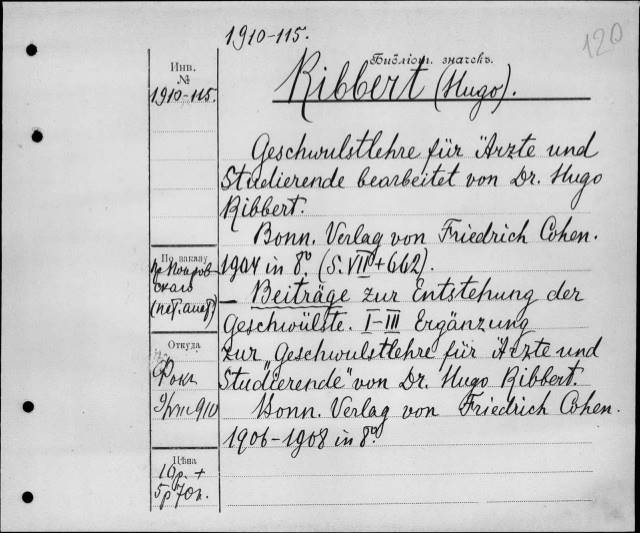 1910-115.
120
Библіот. значекъ.
Инв.
№
1910-115.
Ribbert (Hugo).
Geschwulstlehre für Ärzte und
Studierende bearbeitet von Dr. Hugo
Ribbert.
Bonn. Verlag von Friedrich Cohen.
По заказу
1904 in 8º (S. VIII + 662).
— Beiträge zur Entstehung der
Geschwülste. I-III Ergänzung
Откуда
zur „Geschwulstlehre für Ärzte und
Studierende" von Dr. Hugo Ribbert.
Bonn. Verlag von Friedrich Cohen.
1906-1908 in 8º
Цѣна
10р. +
5р70к.